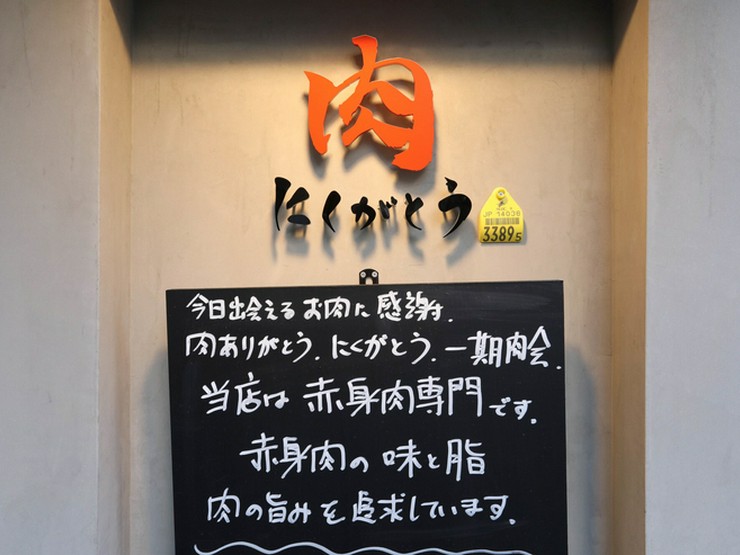 肉
にくがとう
JP 14036
3389 5
今日出会えるお肉に感謝。
肉ありがとう。にくがとう。一期肉会。
当店は赤身肉専門です。
赤身肉の味と脂
肉の旨みを追求しています。